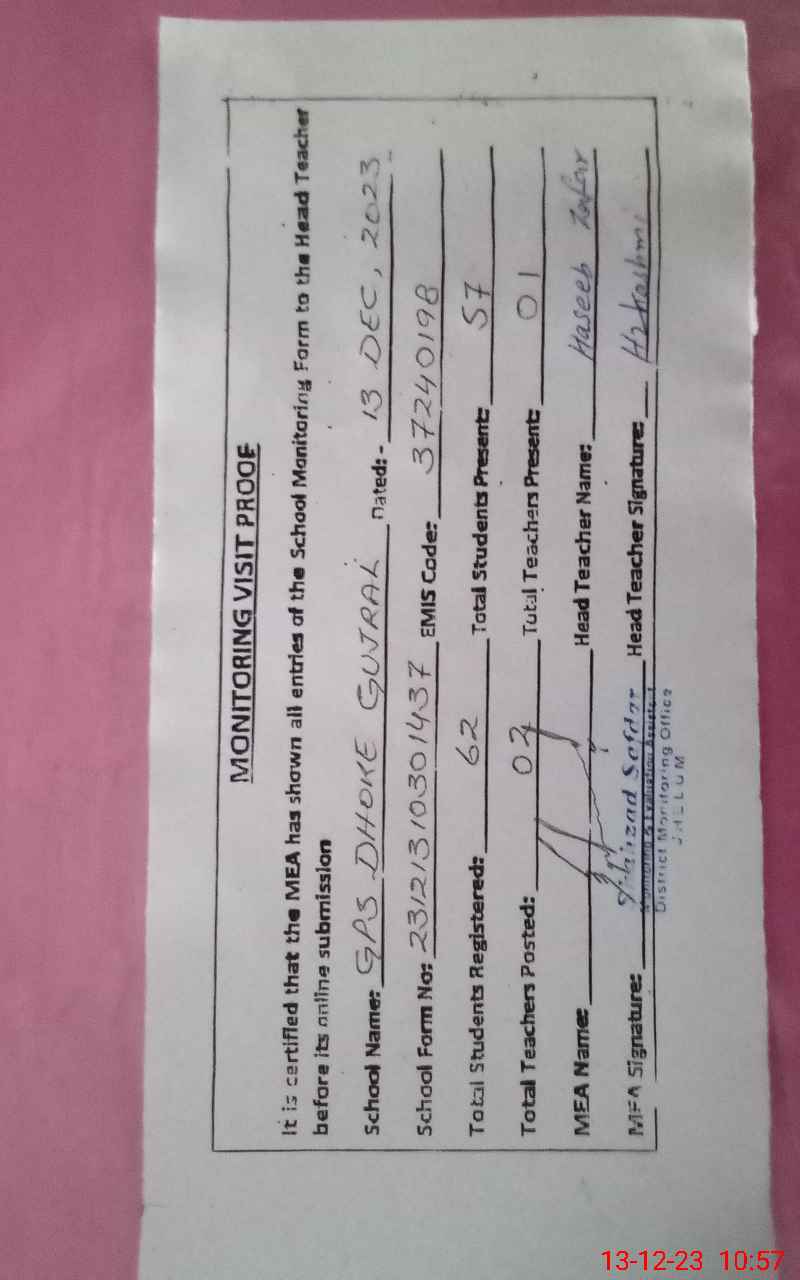 MONITORING VISIT PROOF
It is certified that the MEA has shown all entries of the School Monitoring Form to the Head Teacher
before its online submission
School Name: GPS DHOKE GUJRAL Dated: - 13 DEC, 2023
School Form No: 2312131030 1437 EMIS Code: 37240198
Total Students Registered: 62 Total Students Present: 57
Total Teachers Posted: 02 Total Teachers Present: 01
MEA Name: Head Teacher Name: Haseeb Zafar
MEA Signature: Safdar Head Teacher Signature: Hzhashmi
Monitoring & Evaluation Assistant
District Monitoring Office
JHELUM
13-12-23 10:57